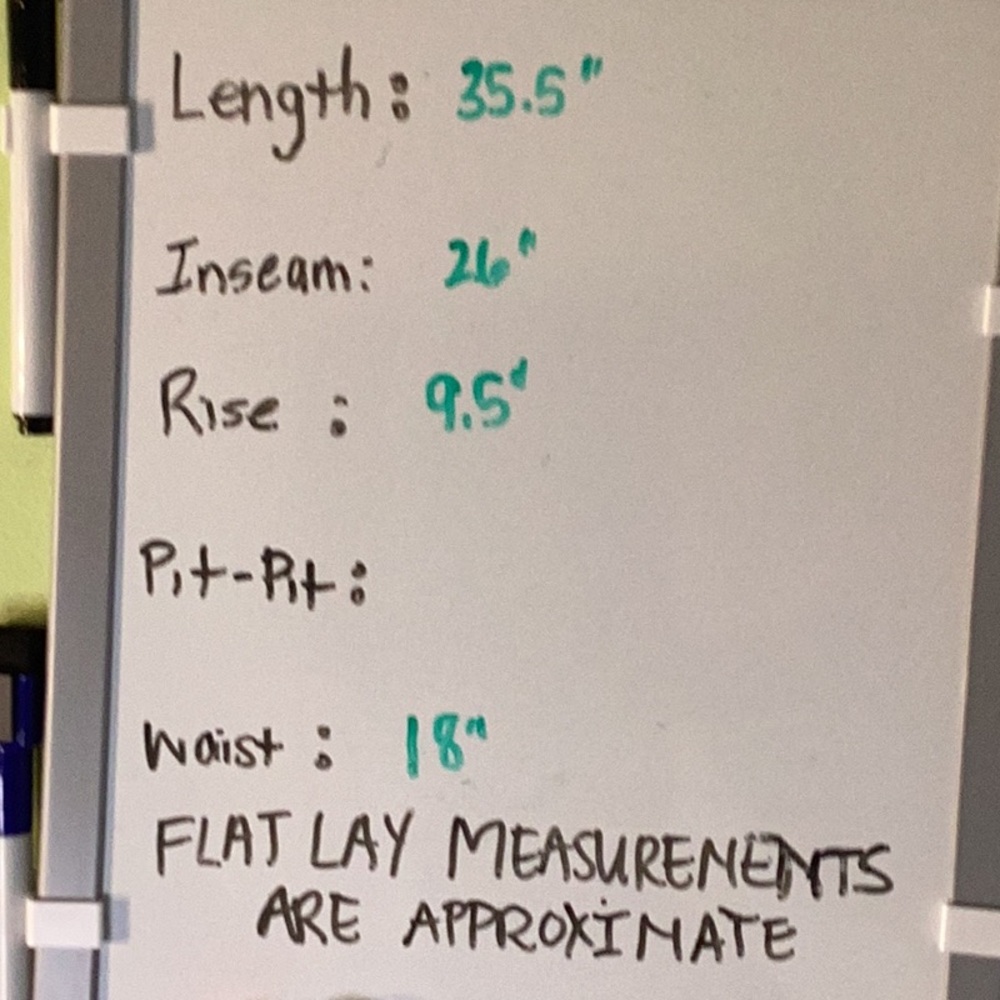 Length: 35.5"
Inseam: 26"
Rise : 9.5"
Pit-Pit:
Waist : 18"
FLAT LAY MEASUREMENTS
ARE APPROXIMATE